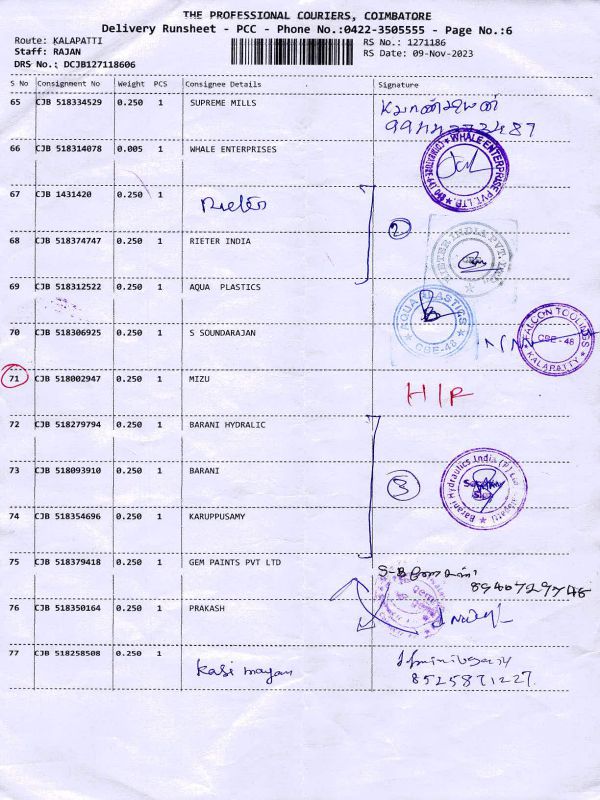 THE PROFESSIONAL COURIERS, COIMBATORE
Delivery Runsheet - PCC - Phone No.:0422-3505555 - Page No.:6
Route: KALAPATTI
RS No.: 1271186
Staff: RAJAN
RS Date: 09-Nov-2023
DRS No.: DCJB127118606
S No Consignment No Weight PCS Consignee Details Signature
65 CJB 518334529 0.250 1 SUPREME MILLS
66 CJB 518314078 0.005 1 WHALE ENTERPRISES
WHALE ENTERPRISE PVT. LTD.
67 CJB 1431420 0.250 1 Rieter
2
68 CJB 518374747 0.250 1 RIETER INDIA
RIETER INDIA PVT. LTD.
69 CJB 518312522 0.250 1 AQUA PLASTICS
AQUA PLASTICS
CBE-48
70 CJB 518306925 0.250 1 S SOUNDARAJAN
FALCON TOOLINGS
CBE-48
KALAPATTY
71 CJB 518002947 0.250 1 MIZU
72 CJB 518279794 0.250 1 BARANI HYDRALIC
73 CJB 518093910 0.250 1 BARANI
3
Barani Hydraulics India (P) Ltd
74 CJB 518354696 0.250 1 KARUPPUSAMY
75 CJB 518379418 0.250 1 GEM PAINTS PVT LTD
76 CJB 518350164 0.250 1 PRAKASH
77 CJB 518258508 0.250 1 Kasi mayan
8525871227